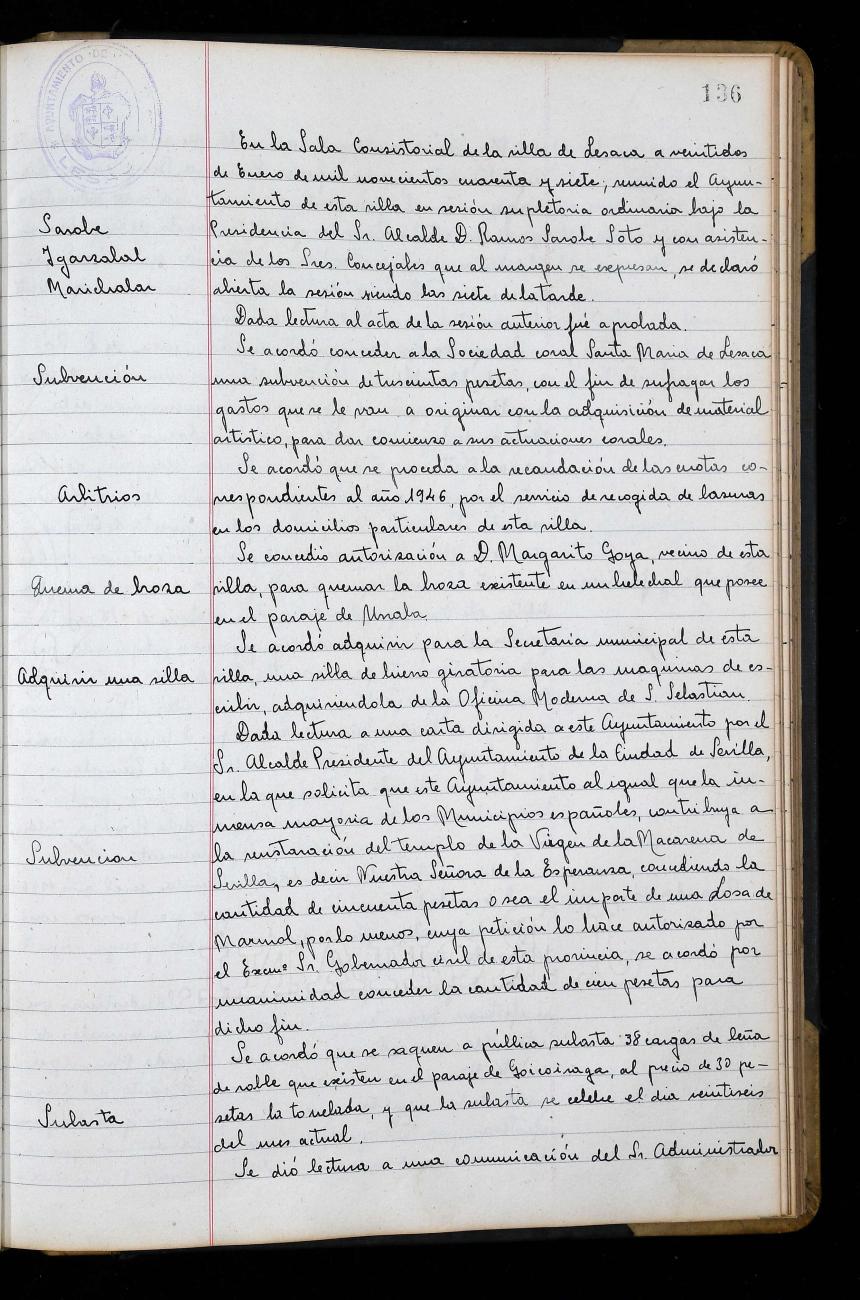 136
AYUNTAMIENTO DE
En la Sala Consistorial de la villa de Lesaca a veintidos
de Enero de mil novecientos cuarenta y siete; reunido el Ayun-
tamiento de esta villa en sesión supletoria ordinaria bajo la
Sarobe
Presidencia del Sr. Alcalde D. Ramos Sarobe Soto y con asisten-
Igarzabal
cia de los Sres. Concejales que al margen se expresan, se declaró
Marichalar
abierta la sesión siendo las siete de la tarde.
Dada lectura al acta de la sesión anterior fué aprobada.
Se acordó conceder a la Sociedad coral Santa Maria de Lesaca
Subvención
una subvención de trescientas pesetas, con el fin de sufragar los
gastos que se le van a originar con la adquisición de material
artistico, para dar comienzo a sus actuaciones corales.
Se acordó que se proceda a la recaudación de las cuotas co-
Arbitrios
rrespondientes al año 1946, por el servicio de recogida de basuras
en los domicilios particulares de esta villa.
Se concedio autorización a D. Margarito Goya, vecino de esta
Quema de broza
villa, para quemar la broza existente en un helechal que posee
en el paraje de
Se acordó adquirir para la Secretaria municipal de esta
Adquirir una silla
villa, una silla de hierro giratoria para las maquinas de es-
cribir, adquiriendola de la Oficina Moderna de S. Sebastian.
Dada lectura a una carta dirigida a este Ayuntamiento por el
Sr. Alcalde Presidente del Ayuntamiento de la Ciudad de Sevilla,
en la que solicita que este Ayuntamiento al igual que la in-
mensa mayoria de los Municipios españoles, contribuya a
Subvencion
la restaración del templo de la Virgen de la Macarena de
Sevilla, es decir Nuestra Señora de la Esperanza, concediendo la
cantidad de cincuenta pesetas o sea el importe de una Losa de
Marmol, por lo menos, cuya petición lo hace autorizado por
el Excmº Sr. Gobernador civil de esta provincia, se acordó por
unanimidad conceder la cantidad de cien pesetas para
dicho fin.
Se acordó que se saquen a pública subasta 38 cargas de leña
de roble que existen en el paraje de Goicoiraga, al precio de 30 pe-
Subasta
setas la tonelada, y que la subasta se celebre el dia veintiseis
del mes actual.
Se dió lectura a una comunicación del Sr. Administrador